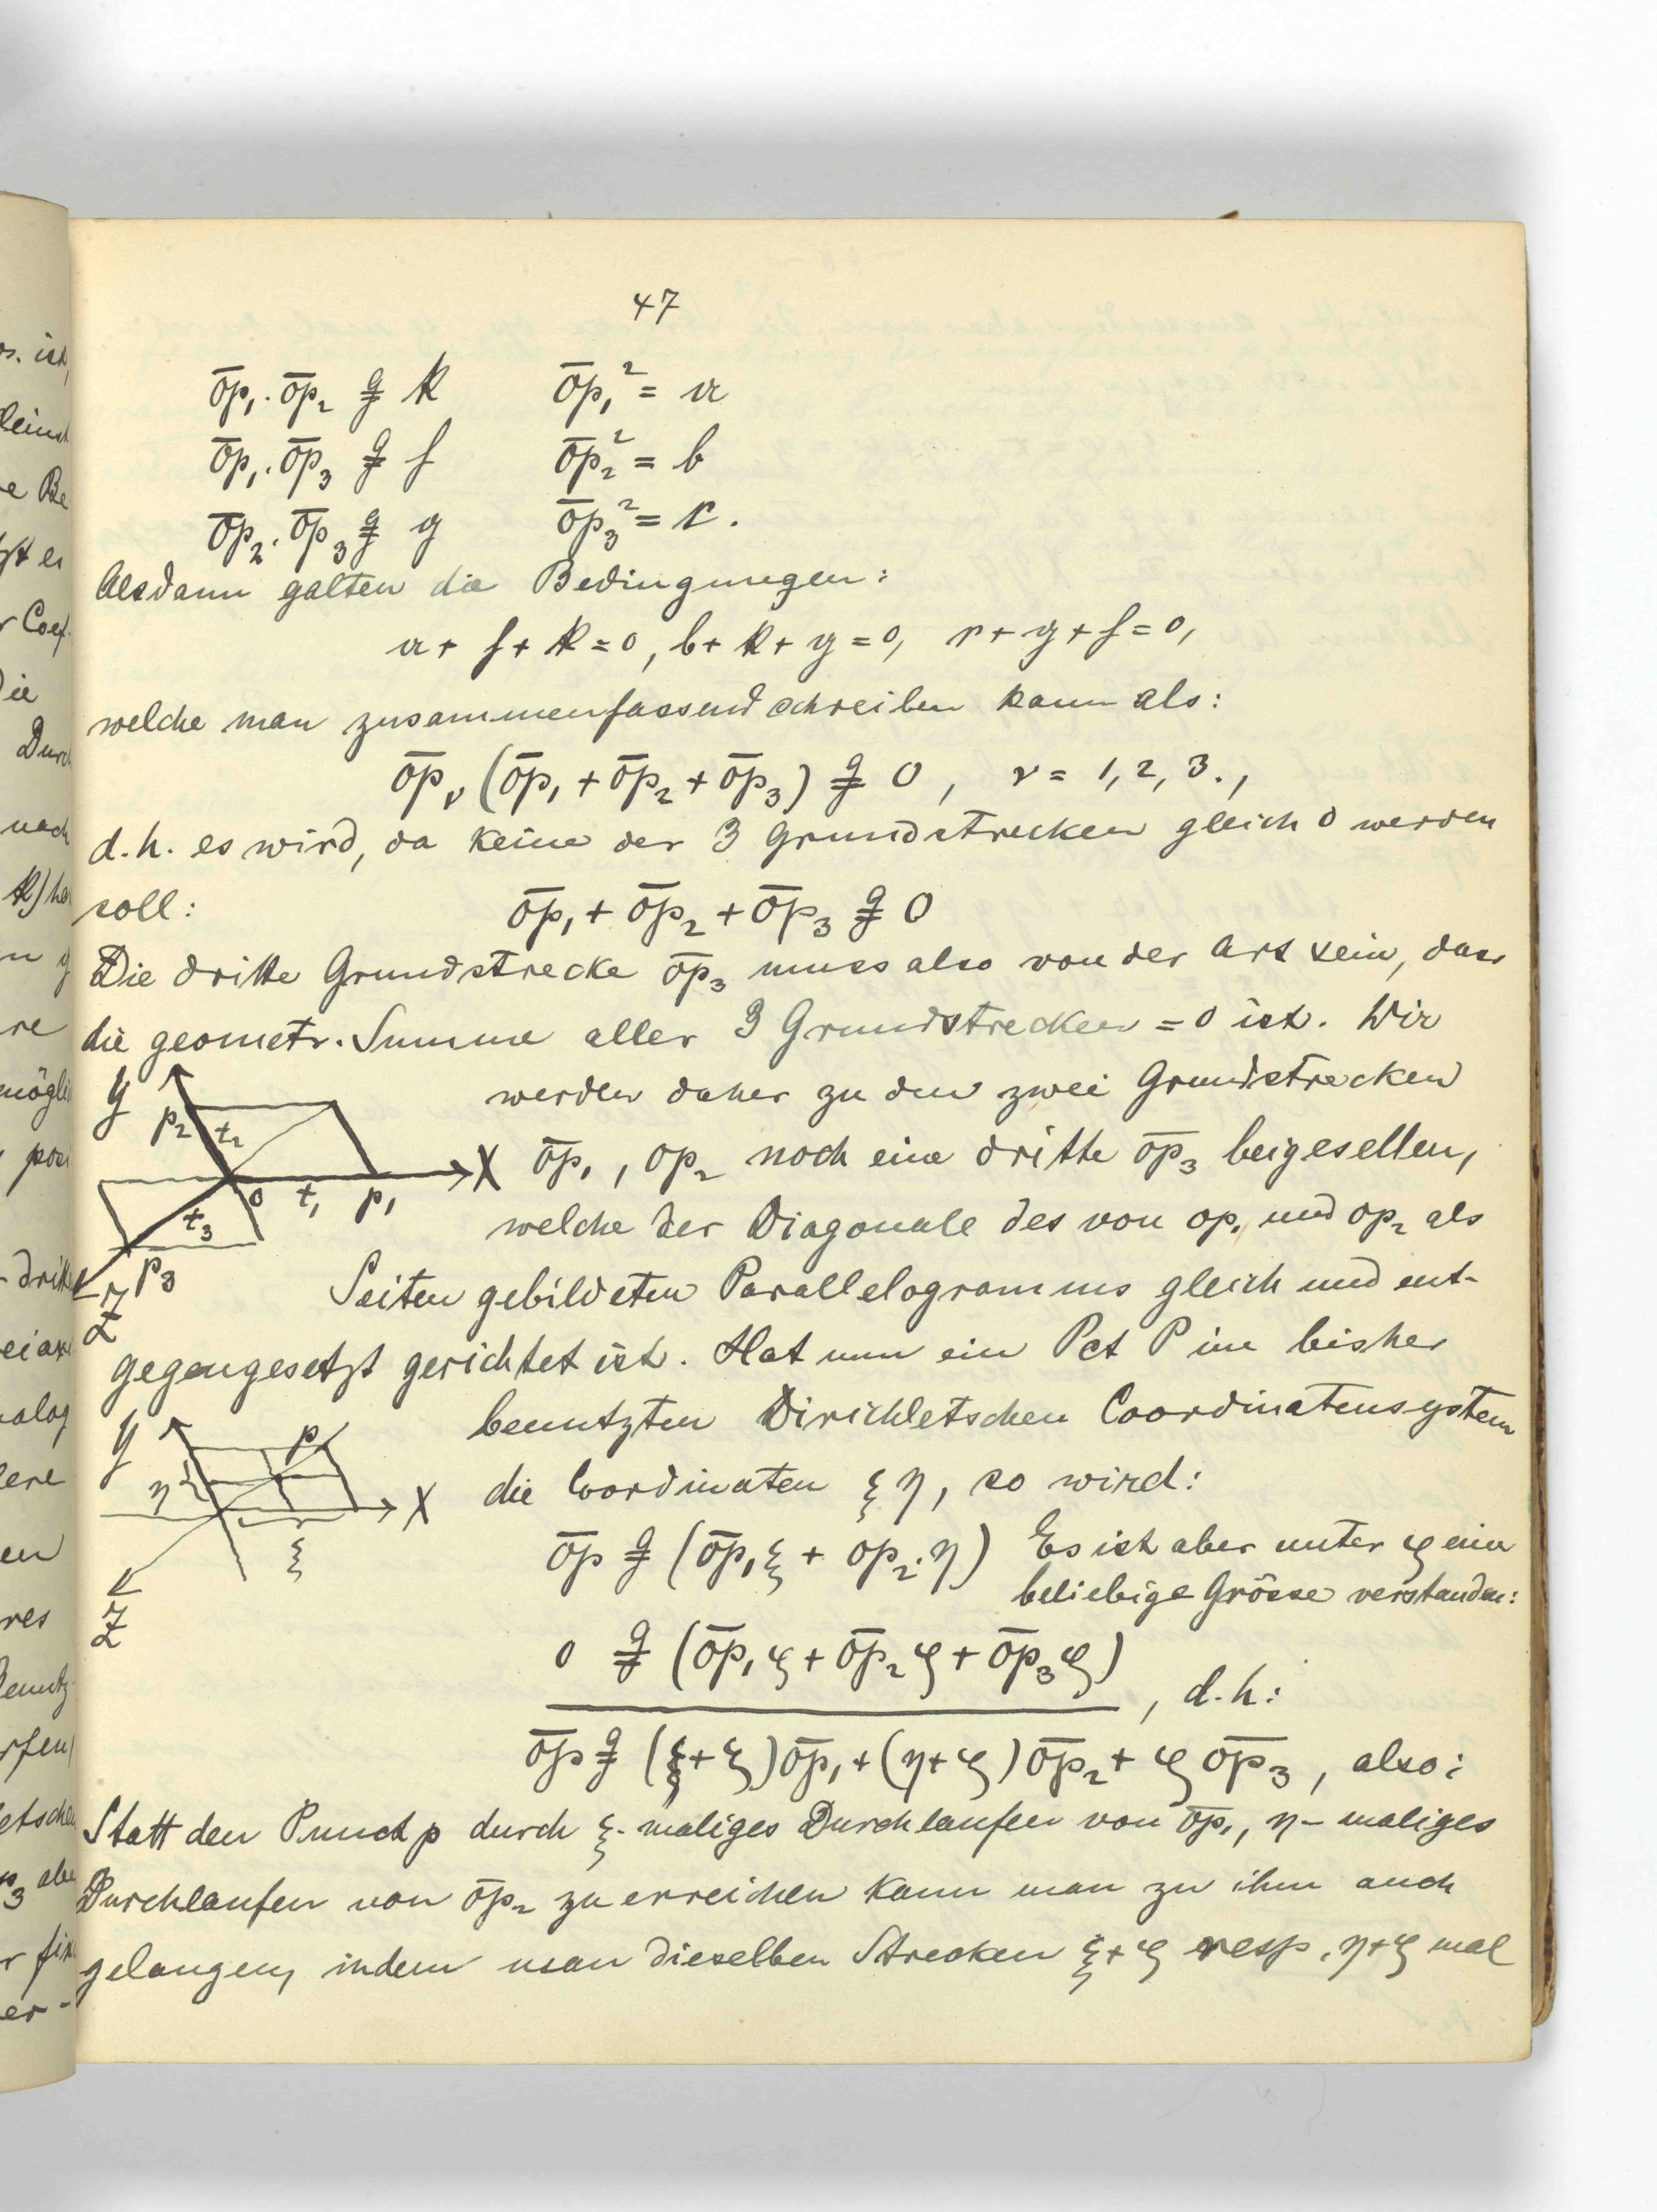 47
o̅p̅₁·o̅p̅₂ ≟ k o̅p̅₁² = a
o̅p̅₁·o̅p̅₃ ≟ f o̅p̅₂² = b
o̅p̅₂·o̅p̅₃ ≟ g o̅p̅₃² = c.
Alsdann galten die Bedingungen:
a + f + k = 0, b + k + g = 0, c + g + f = 0,
welche man zusammenfassend schreiben kann als:
o̅p̅ᵥ (o̅p̅₁ + o̅p̅₂ + o̅p̅₃) ≟ 0, ν = 1, 2, 3.,
d.h. es wird, da keine der 3 Grundstrecken gleich 0 werden
soll: o̅p̅₁ + o̅p̅₂ + o̅p̅₃ ≟ 0
Die dritte Grundstrecke o̅p̅₃ muss also von der Art sein, dass
die geometr. Summe aller 3 Grundstrecken = 0 ist. Wir
werden daher zu den zwei Grundstrecken
o̅p̅₁, op₂ noch eine dritte o̅p̅₃ beigesellen,
welche der Diagonale des von op₁ und op₂ als
Seiten gebildeten Parallelogramms gleich und ent-
gegengesetzt gerichtet ist. Hat nun ein Pct P im bisher
benutzten Dirichletschen Coordinatensystem
die Coordinaten ξ η, so wird:
o̅p̅ ≟ (o̅p̅₁ξ + op₂·η) Es ist aber unter ζ eine
beliebige Grösse verstanden:
0 ≟ (o̅p̅₁ζ + o̅p̅₂ζ + o̅p̅₃ζ)
, d.h:
o̅p̅ ≟ (ξ+ζ)o̅p̅₁ + (η+ζ)o̅p̅₂ + ζ o̅p̅₃, also:
Statt den Punct p durch ξ-maliges Durchlaufen von o̅p̅₁, η-maliges
Durchlaufen von o̅p̅₂ zu erreichen kann man zu ihm auch
gelangen, indem man dieselben Strecken ξ+ζ resp. η+ζ mal
y
p₂
t₂
X
o
t₁
p₁
t₃
p₃
Z
y
p
η
X
ξ
Z